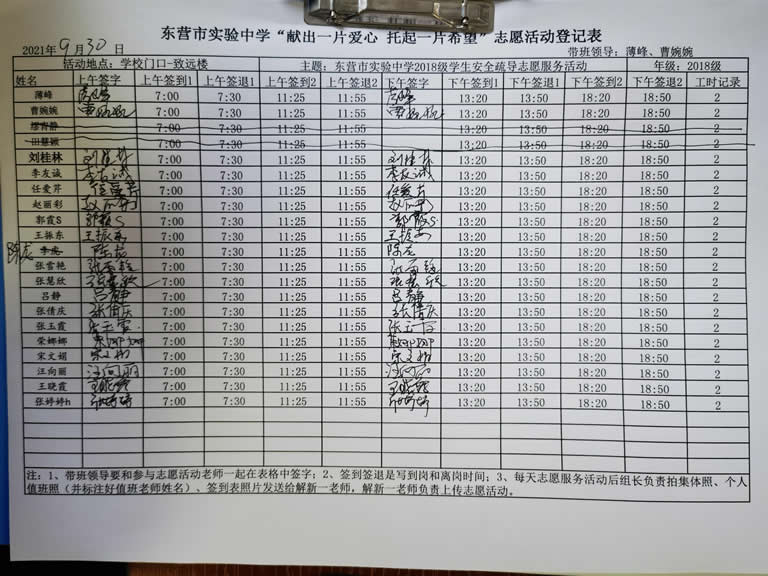 东营市实验中学“献出一片爱心 托起一片希望”志愿活动登记表
2021年9月30日 带班领导：薄峰、曹婉婉
活动地点：学校门口-致远楼 主题：东营市实验中学2018级学生安全疏导志愿服务活动 年级：2018级
姓名 上午签字 上午签到1 上午签退1 上午签到2 上午签退2 下午签字 下午签到1 下午签退1 下午签到2 下午签退2 工时记录
薄峰 薄峰 7:00 7:30 11:25 11:55 薄峰 13:20 13:50 18:20 18:50 2
曹婉婉 曹婉婉 7:00 7:30 11:25 11:55 曹婉婉 13:20 13:50 18:20 18:50 2
7:00 7:30 11:25 11:55 13:20 13:50 18:20 18:50 2
田慧颖 7:00 7:30 11:25 11:55 13:20 13:50 18:20 18:50 2
刘桂林 刘桂林 7:00 7:30 11:25 11:55 刘桂林 13:20 13:50 18:20 18:50 2
李友诚 李友诚 7:00 7:30 11:25 11:55 李友诚 13:20 13:50 18:20 18:50 2
任爱芹 任爱芹 7:00 7:30 11:25 11:55 任爱芹 13:20 13:50 18:20 18:50 2
赵丽彩 7:00 7:30 11:25 11:55 13:20 13:50 18:20 18:50 2
郭霞S 郭霞S 7:00 7:30 11:25 11:55 郭霞S 13:20 13:50 18:20 18:50 2
王振东 王振东 7:00 7:30 11:25 11:55 王振东 13:20 13:50 18:20 18:50 2
7:00 7:30 11:25 11:55 13:20 13:50 18:20 18:50 2
张雪艳 张雪艳 7:00 7:30 11:25 11:55 张雪艳 13:20 13:50 18:20 18:50 2
张慧欣 张慧欣 7:00 7:30 11:25 11:55 张慧欣 13:20 13:50 18:20 18:50 2
吕静 吕静 7:00 7:30 11:25 11:55 吕静 13:20 13:50 18:20 18:50 2
张倩庆 张倩庆 7:00 7:30 11:25 11:55 张倩庆 13:20 13:50 18:20 18:50 2
张玉霞 张玉霞 7:00 7:30 11:25 11:55 张玉霞 13:20 13:50 18:20 18:50 2
荣娜娜 7:00 7:30 11:25 11:55 13:20 13:50 18:20 18:50 2
宋文娟 宋文娟 7:00 7:30 11:25 11:55 宋文娟 13:20 13:50 18:20 18:50 2
汪向丽 汪向丽 7:00 7:30 11:25 11:55 汪向丽 13:20 13:50 18:20 18:50 2
王晓霞 王晓霞 7:00 7:30 11:25 11:55 王晓霞 13:20 13:50 18:20 18:50 2
张婷婷h 张婷婷 7:00 7:30 11:25 11:55 张婷婷 13:20 13:50 18:20 18:50 2
注：1、带班领导要和参与志愿活动老师一起在表格中签字；2、签到签退是写到岗和离岗时间；3、每天志愿服务活动后组长负责拍集体照、个人
值班照（并标注好值班老师姓名）、签到表照片发送给解新一老师，解新一老师负责上传志愿活动。